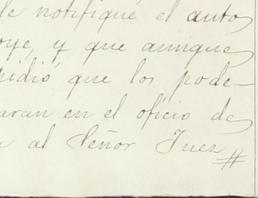 le notifiqué el auto
oye, y que aunque
pidió que los pode-
aran en el oficio de
al Señor Juez